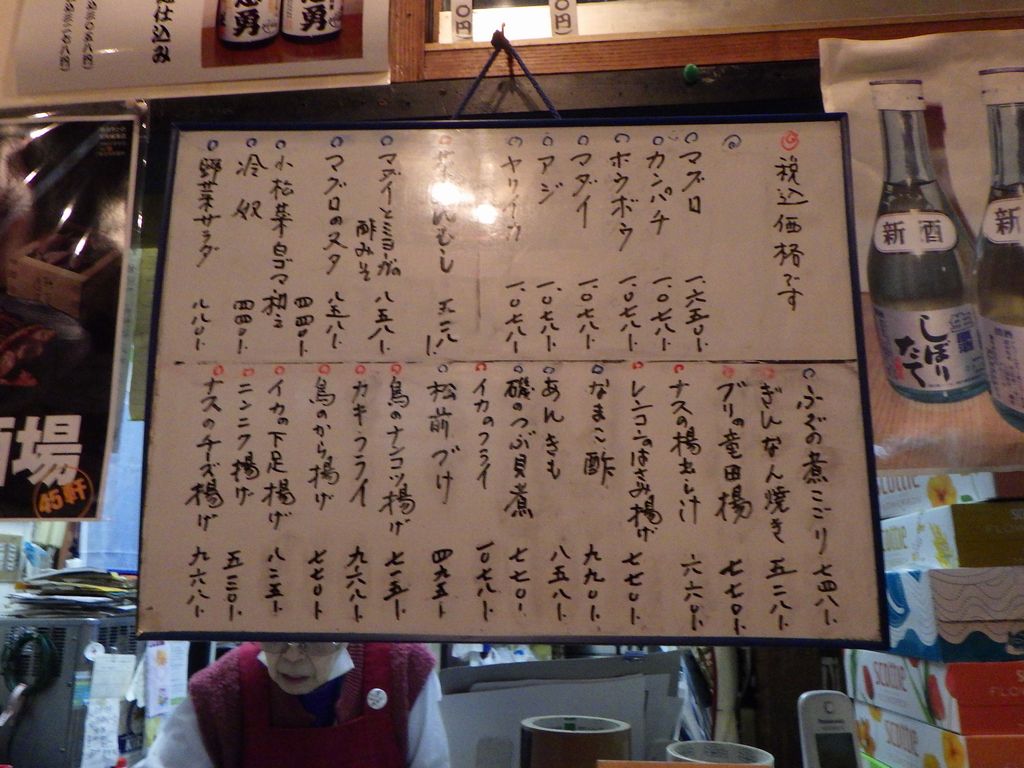 税込価格です
マグロ 一、六五〇1.
カンパチ 一、〇七八1.
ホウボウ 一、〇七八1.
マダイ 一、〇七八1.
アジ 一、〇七八1.
ヤリイカ 一、〇七八1.
マダイとミョーガの酢みそ 八五八1.
マグロのヌタ 八五八1.
小松菜白ゴマ和え 四四〇1.
冷奴 四四〇1.
野菜サラダ 八八〇1.
ふぐの煮こごり 七四八1.
ぎんなん焼き 五二八1.
ブリの竜田揚 七七〇1.
ナスの揚出し汁 六六〇1.
レンコンのはさみ揚げ 七七〇1.
なまこ酢 九九〇1.
あんきも 八五八1.
磯のつぶ貝煮 七七〇1.
イカのフライ 一〇七八1.
松前づけ 四九五1.
鳥のナンコツ揚げ 七一五1.
カキフライ 九六八1.
鳥のから揚げ 七七〇1.
イカの下足揚げ 八二五1.
ニンニク揚げ 五五〇1.
ナスのチーズ揚げ 九六八1.
新酒
しぼりたて
新酒
場
45軒
仕込み
勇
勇
scottie
scottie
scottie